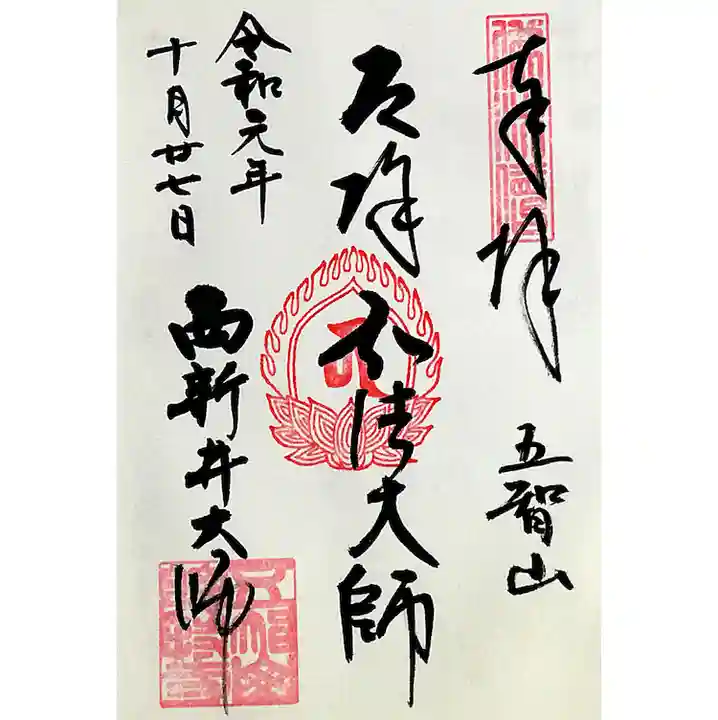 奉拝
五智山
厄除弘法大師
西新井大師
令和元年
十月廿七日